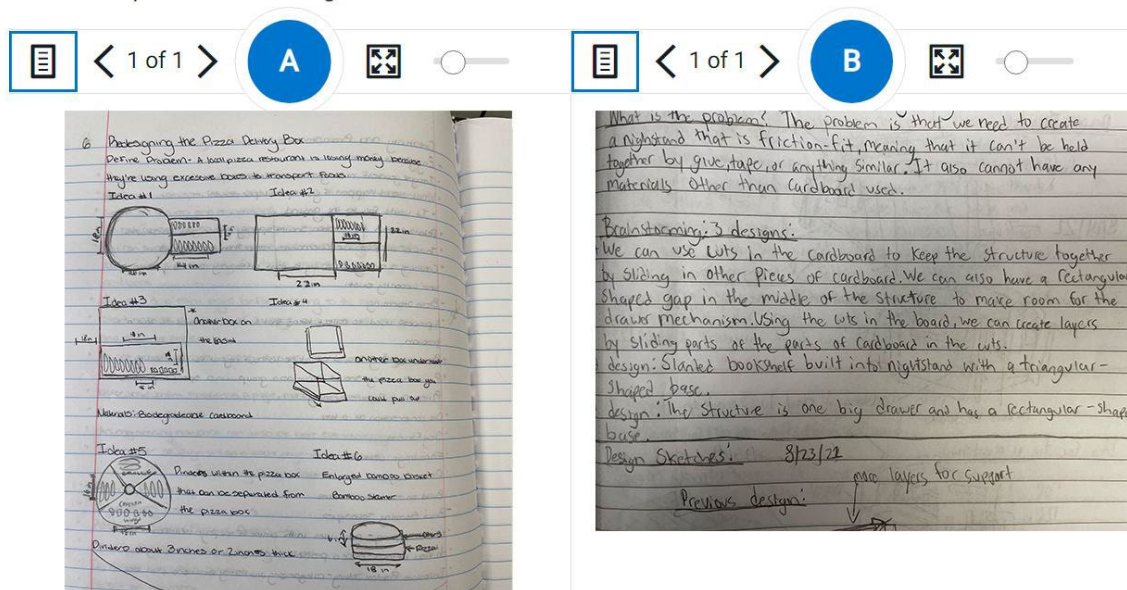 1 of 1
A
6 Redesigning the Pizza Delivery Box
Define Problem- A local pizza restaurant is losing money because
they're using excessive boxes to transport foods
Idea #1
Idea #2
18in
14in
22in
22in
Idea #3
Idea #4
Another box on
the
another box underneath
the pizza box you
could pull out
Materials: Biodegradable cardboard
Idea #5
Idea #6
Dividers within the pizza box
that can be separated from
the pizza box
Enlarged bamboo basket
Bamboo steamer
pizza
18 in
Dividers about 3inches or 2inches thick
1 of 1
B
What is the problem? The problem is that we need to create
a nighstand that is friction-fit, meaning that it can't be held
together by glue, tape, or anything similar. It also cannot have any
materials other than cardboard used.
Brainstorming: 3 designs:
We can use cuts in the cardboard to keep the structure together
by sliding in other pieces of cardboard. We can also have a rectangular
shaped gap in the middle of the structure to make room for the
drawer mechanism. Using the cuts in the board, we can create layers
by sliding parts of the parts of cardboard in the cuts.
design: Slanted bookshelf built into nightstand with a triangular-
shaped base.
design: The structure is one big drawer and has a rectangular-shape
base.
Design Sketches: 8/23/22
more layers for support
Previous design: